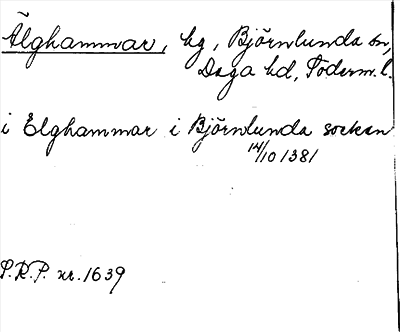 Älghammar, hg, Björnlunda sn,
Daga hd, Söderm. l.
i Elghammar i Björnlunda sockan
14/10 1381
S.R.P. nr. 1639